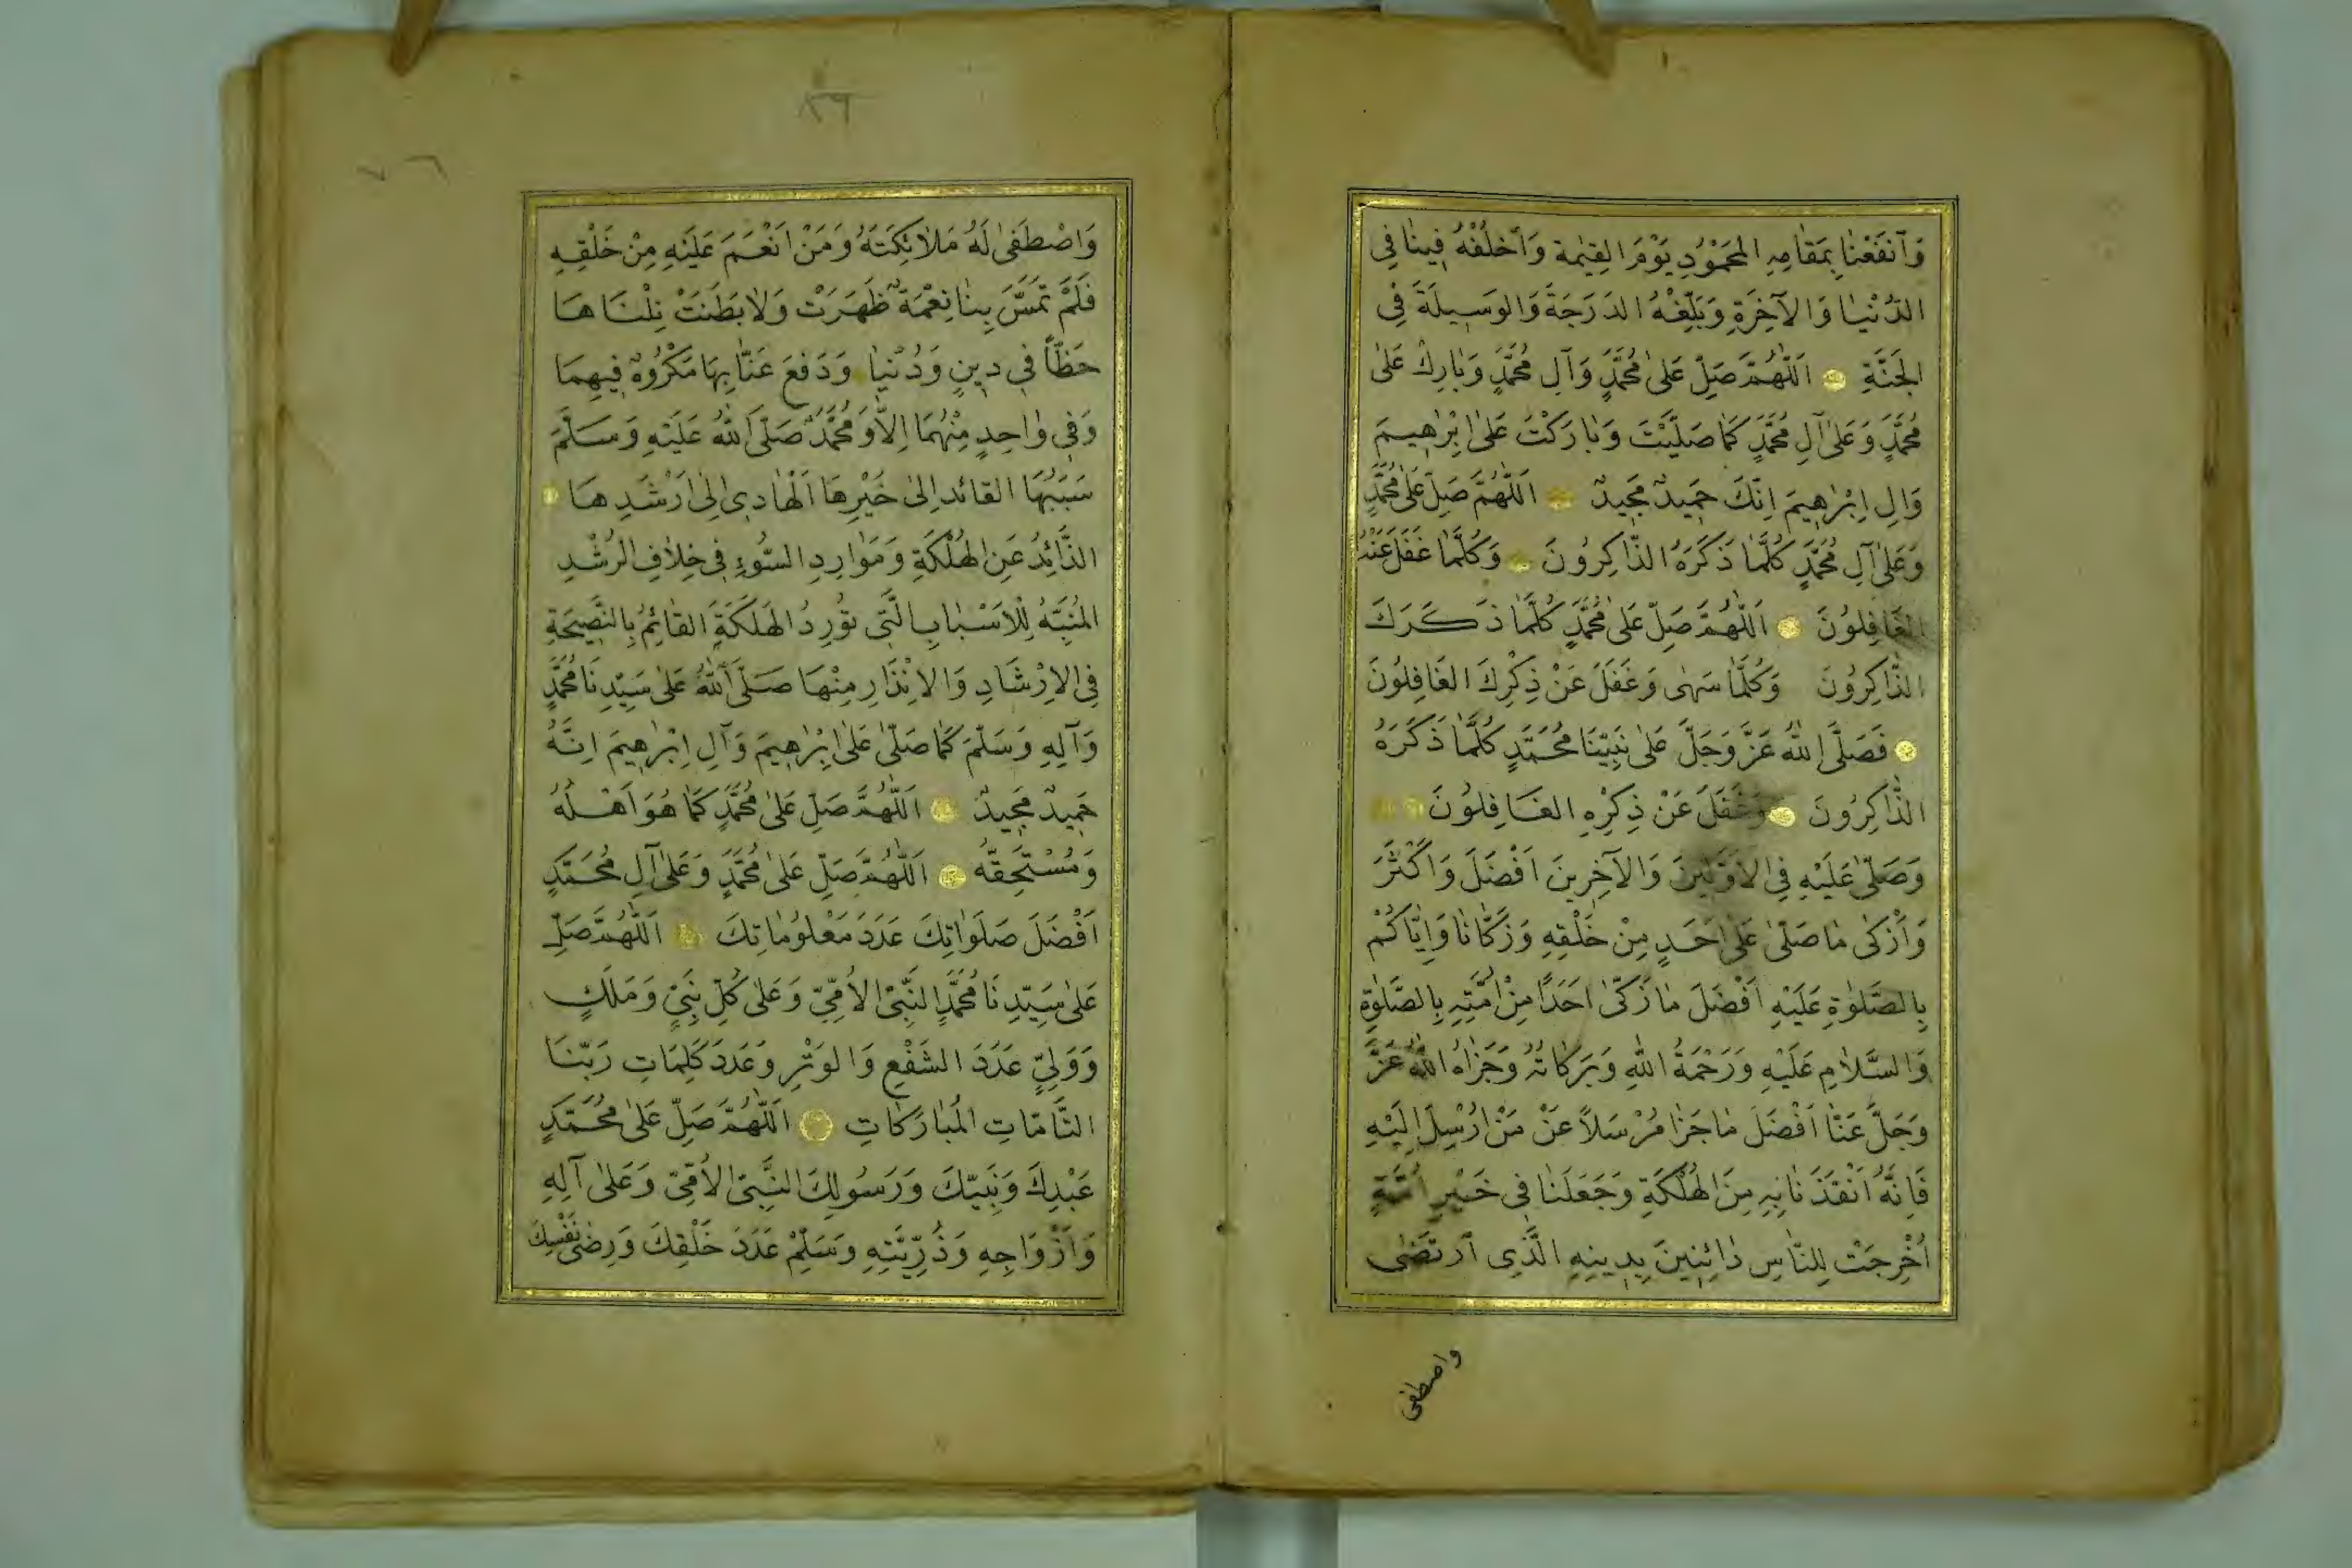 وَآنفَعْنَا بِمَقَامِهِ الْمَحْمُودِ يَوْمَ القِيٰمَة وَاَخْلُفْهُ فِينَا فِي
الدُّنْيَا وَالآخِرَةِ وَبَلِّغْهُ الدَرَجَةَ وَالوَسِيلَةَ فِي
الجَنَّةِ اَللّٰهُمَّ صَلِّ عَلىٰ مُحَمَّدٍ وَآلِ مُحَمَّدٍ وَبَارِكْ عَلىٰ
مُحَمَّدٍ وَعَلىٰ آلِ مُحَمَّدٍ كَمَا صَلَّيْتَ وَبَارَكْتَ عَلىٰ اِبْرٰهِيمَ
وَالِ اِبْرٰهِيمَ اِنَّكَ حَمِيدٌ مَجِيدٌ اَللّٰهُمَّ صَلِّ عَلىٰ مُحَمَّدٍ
وَعَلىٰ آلِ مُحَمَّدٍ كُلَّمَا ذَكَرَهُ الذَّاكِرُونَ وَكُلَّمَا غَفَلَ عَنْهُ
الغَافِلُونَ اَللّٰهُمَّ صَلِّ عَلىٰ مُحَمَّدٍ كُلَّمَا ذَكَرَكَ
الذَّاكِرُونَ وَكُلَّمَا سَهٰى وَغَفَلَ عَنْ ذِكْرِكَ الغَافِلُونَ
فَصَلَّى اللهُ عَزَّ وَجَلَّ عَلىٰ نَبِيِّنَا مُحَمَّدٍ كُلَّمَا ذَكَرَهُ
الذَّاكِرُونَ وَغَفَلَ عَنْ ذِكْرِهِ الغَافِلُونَ
وَصَلّىٰ عَلَيْهِ فِي الاَوَّلِينَ وَالآخِرِينَ اَفْضَلَ وَاَكْثَرَ
وَاَزْكىٰ مَا صَلّىٰ عَلىٰ اَحَدٍ مِنْ خَلْقِهِ وَزَكَّانَا وَاِيَّاكُمْ
بِالصَّلوٰةِ عَلَيْهِ اَفْضَلَ مَا زَكّىٰ اَحَدًا مِنْ اُمَّتِهِ بِالصَّلوٰةِ
وَالسَّلَامِ عَلَيْهِ وَرَحْمَةُ اللهِ وَبَرَكَاتُهُ وَجَزَاهُ اللهُ عَزَّ
وَجَلَّ عَنَّا اَفْضَلَ مَا جَزَا مُرْسَلاً عَنْ مَنْ اُرْسِلَ اِلَيْهِ
فَاِنَّهُ اَنْقَذَنَا بِهِ مِنَ الهُلْكَةِ وَجَعَلَنَا فِي خَيْرِ اُمَّةٍ
اُخْرِجَتْ لِلنَّاسِ دَائِنِينَ بِدِينِهِ الَّذِي آرْتَضٰى
واصطفى
٧٦
وَاصْطَفىٰ لَهُ مَلَائِكَتَهُ وَمَنْ اَنْعَمَ عَلَيْهِ مِنْ خَلْقِهِ
فَلَمْ تَمَسَّ بِنَا نِعْمَةٌ ظَهَرَتْ وَلَا بَطَنَتْ نِلْنَا هَا
حَظّاً فِي دِينٍ وَدُنْيَا وَدَفَعَ عَنَّا بِهَا مَكْرُوهٌ فِيهِمَا
وَفِي وَاحِدٍ مِنْهُمَا اِلَّا وَمُحَمَّدٌ صَلَّى اللهُ عَلَيْهِ وَسَلَّمَ
سَبَبُهَا القَائد اِلىٰ خَيْرِهَا اَلْهَادِى اِلىٰ اَرْشَدِ هَا
الذَّائِدُ عَنِ الهُلْكَةِ وَمَوَارِدِ السُّوءِ فِى خِلَافِ الرُشْدِ
المُنَبِّهُ لِلْاَسْبَابِ الَّتِى تُورِدُ الهَلَكَةَ القَائِمُ بِالنَّصِيحَةِ
فِى الاِرْشَادِ وَالاِنْذَارِ مِنْهَا صَلَّى اللهُ عَلىٰ سَيِّدِنَا مُحَمَّدٍ
وَآلِهِ وَسَلَّمَ كَمَا صَلّىٰ عَلىٰ اِبْرٰهِيمَ وَآلِ اِبْرٰهِيمَ اِنَّهُ
حَمِيدٌ مَجِيدٌ اَللّٰهُمَّ صَلِّ عَلىٰ مُحَمَّدٍ كَمَا هُوَ اَهْلُهُ
وَمُسْتَحِقُّهُ اَللّٰهُمَّ صَلِّ عَلىٰ مُحَمَّدٍ وَعَلىٰ آلِ مُحَمَّدٍ
اَفْضَلَ صَلَوَاتِكَ عَدَدَ مَعْلُومَاتِكَ اَللّٰهُمَّ صَلِّ
عَلىٰ سَيِّدِنَا مُحَمَّدٍ النَّبِىِّ الاُمِّىِّ وَعَلىٰ كُلِّ نَبِىٍّ وَمَلَكٍ
وَوَلِيٍّ عَدَدَ الشَفْعِ وَالوَتْرِ وَعَدَدَ كَلِمَاتِ رَبِّنَا
التَّامَّاتِ المُبَارَكَاتِ اَللّٰهُمَّ صَلِّ عَلىٰ مُحَمَّدٍ
عَبْدِكَ وَنَبِيِّكَ وَرَسُولِكَ النَّبِىِّ الاُمِّىِّ وَعَلىٰ آلِهِ
وَاَزْوَاجِهِ وَذُرِّيَّتِهِ وَسَلِّمْ عَدَدَ خَلْقِكَ وَرِضٰى نَفْسِكَ